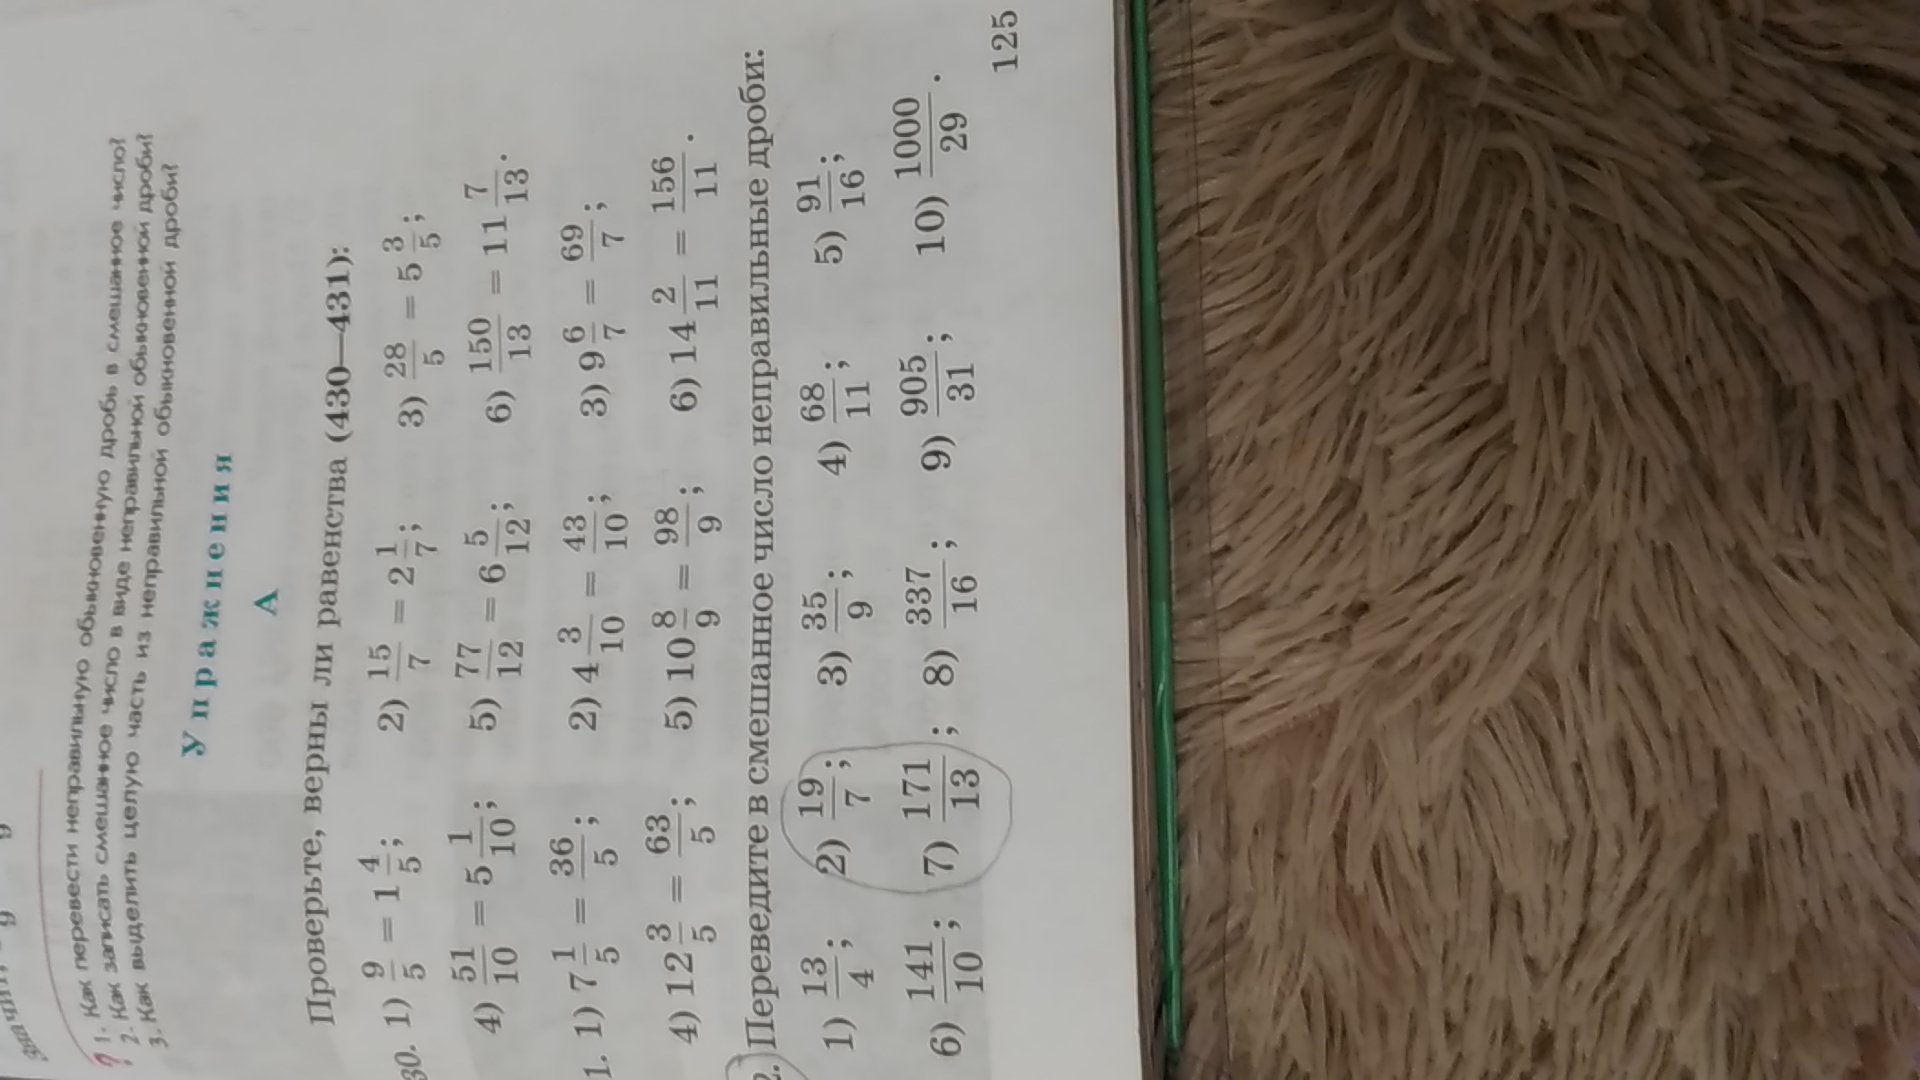 значит
9 9
1. Как перевести неправильную обыкновенную дробь в смешанное число?
2. Как записать смешанное число в виде неправильной обыкновенной дроби?
3. Как выделить целую часть из неправильной обыкновенной дроби?
Упражнения
А
Проверьте, верны ли равенства (430—431):
30. 1) 9/5 = 1 4/5; 2) 15/7 = 2 1/7; 3) 28/5 = 5 3/5;
4) 51/10 = 5 1/10; 5) 77/12 = 6 5/12; 6) 150/13 = 11 7/13.
1. 1) 7 1/5 = 36/5; 2) 4 3/10 = 43/10; 3) 9 6/7 = 69/7;
4) 12 3/5 = 63/5; 5) 10 8/9 = 98/9; 6) 14 2/11 = 156/11.
2. Переведите в смешанное число неправильные дроби:
1) 13/4; 2) 19/7; 3) 35/9; 4) 68/11; 5) 91/16;
6) 141/10; 7) 171/13; 8) 337/16; 9) 905/31; 10) 1000/29.
125